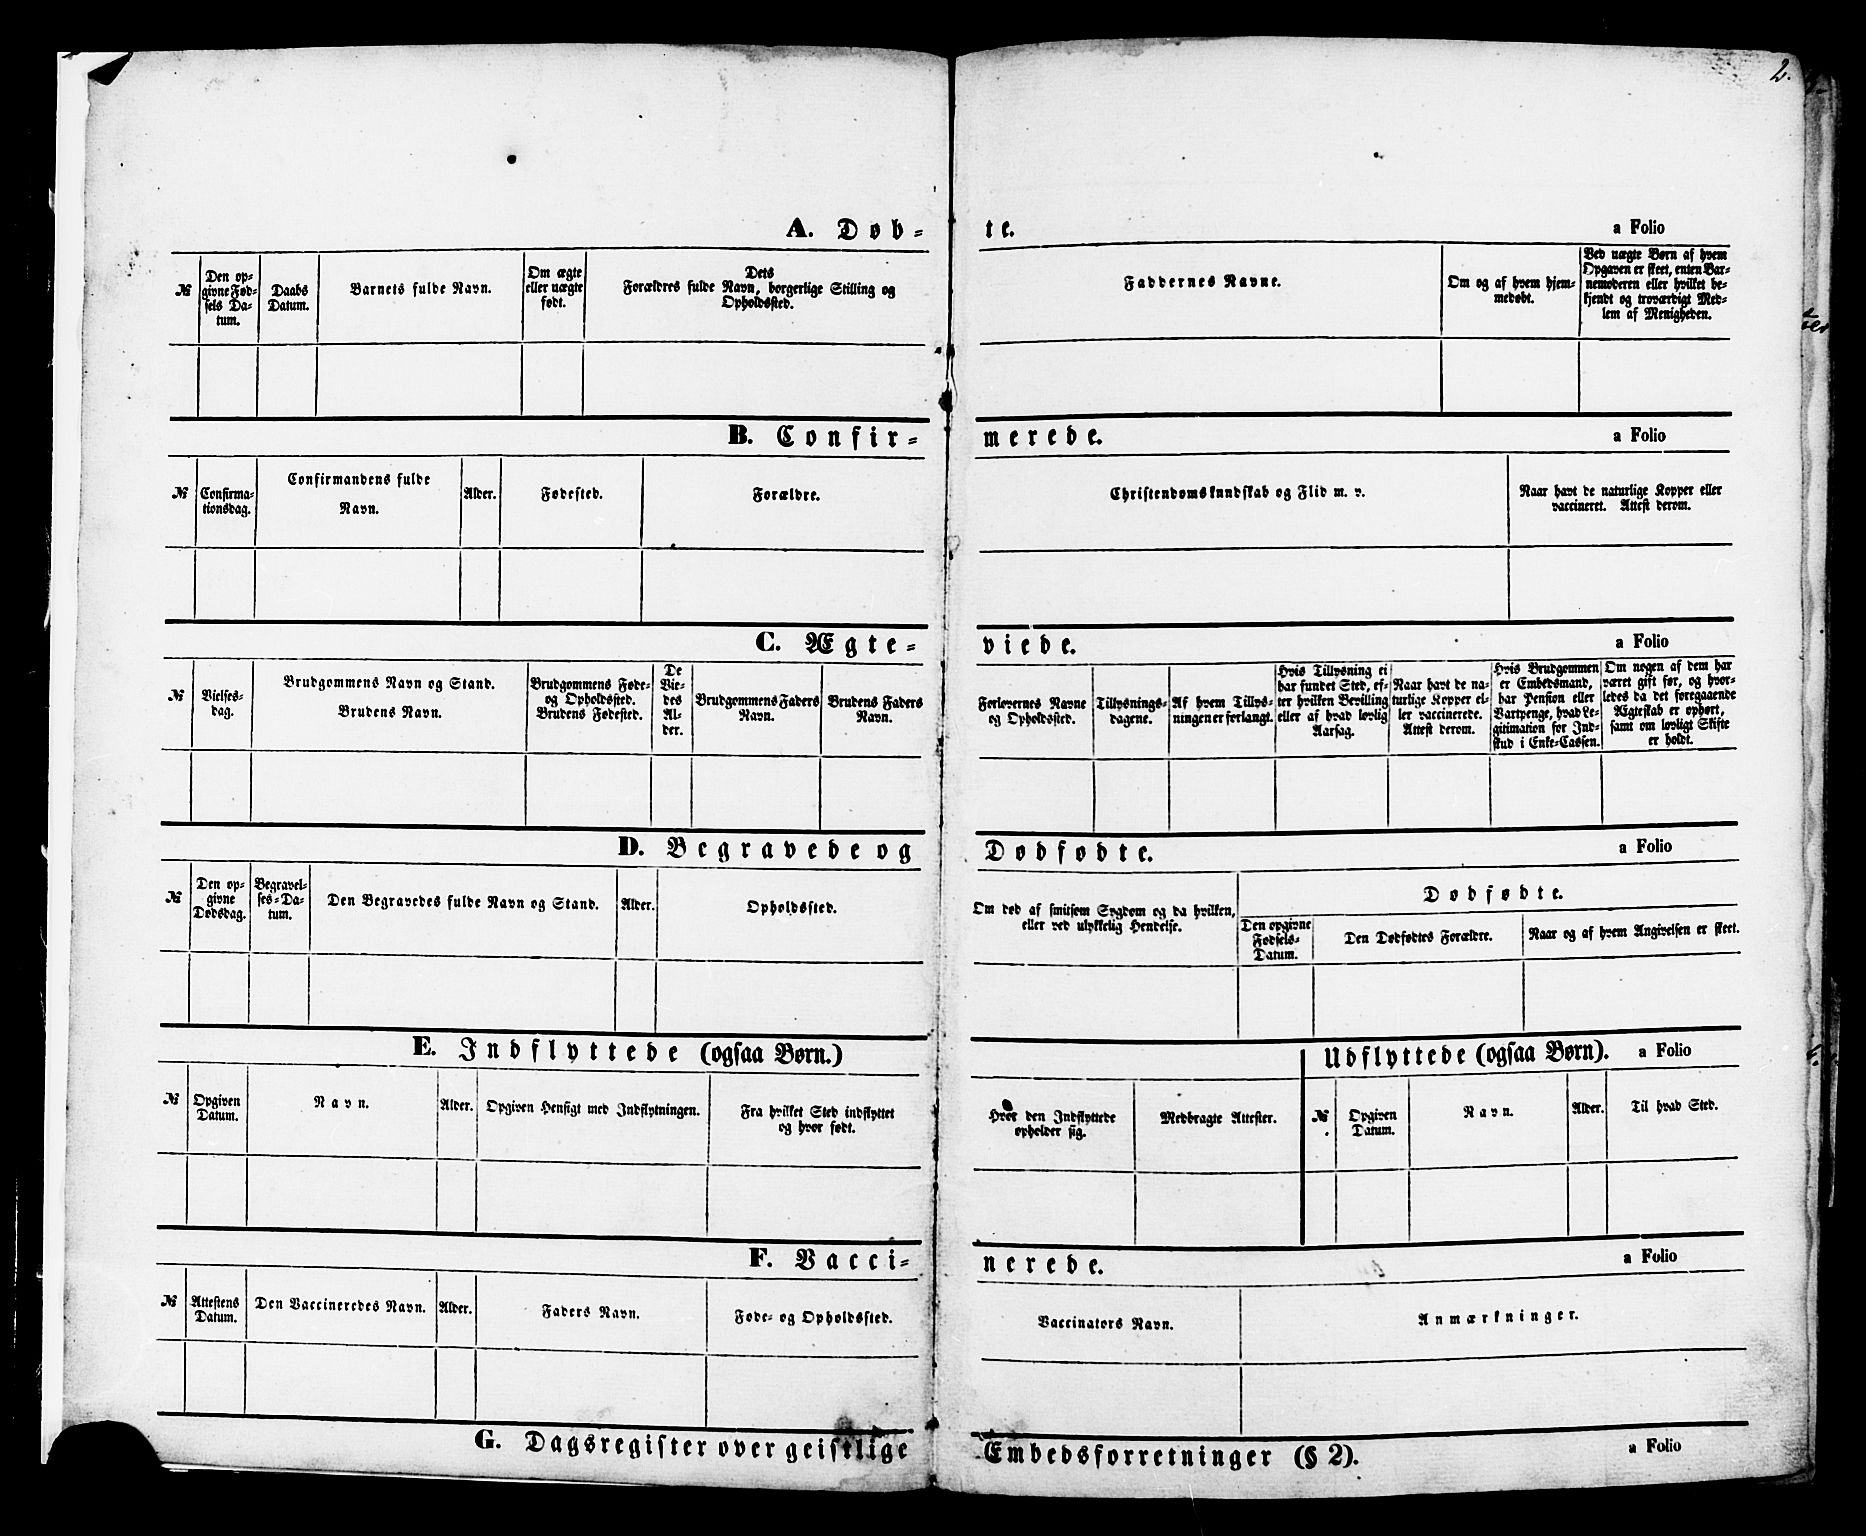 2.
A. Døb-
te.
a Folio
№
Den op-
givne Fød-
sels Da-
tum.
Daabs
Datum.
Barnets fulde Navn.
Om ægte
eller uægte
født.
Dets
Forældres fulde Navn, borgerlige Stilling og
Opholdssted.
Faddernes Navne.
Om og af hvem hjem-
medøbt.
Ved uægte Børn af hvem
Opgaven er skeet, enten Bar-
nemoderen eller hvilket be-
kjendt og troværdigt Med-
lem af Menigheden.
B. Confir-
merede.
a Folio
№
Confirma-
tionsdag.
Confirmandens fulde
Navn.
Alder.
Fødested.
Forældre.
Christendomskundskab og Flid m. v.
Naar havt de naturlige Kopper eller
vaccineret. Attest derom.
C. Ægte-
viede.
a Folio
№
Vielses-
dag.
Brudgommens Navn og Stand.
Brudens Navn.
Brudgommens Føde-
og Opholdssted.
Brudens Fødested.
De
Vie-
des
Al-
der.
Brudgommens Faders
Navn.
Brudens Faders
Navn.
Forlovernes Navne
og Opholdssted.
Tillysnings-
dagene.
Af hvem Tillys-
ningen er forlangt.
Hvis Tillysning ei
har fundet Sted, ef-
ter hvilken Bevilling
eller af hvad lovlig
Aarsag.
Naar havt de na-
turlige Kopper el-
ler vaccinerede.
Attest derom.
Hvis Brudgommen
er Embedsmand,
har Pension eller
Vartpenge, hvad Le-
gitimation for Ind-
skud i Enke-Cassen.
Om nogen af dem har
været gift før, og hvor-
ledes da det foregaaende
Ægteskab er ophørt,
samt om lovligt Skifte
er holdt.
D. Begravede og
Dødfødte.
a Folio
№
Den op-
givne
Dødsdag.
Begravel-
ses-Da-
tum.
Den Begravedes fulde Navn og Stand.
Alder.
Opholdssted.
Om død af smitsom Sygdom og da hvilken,
eller ved ulykkelig Hendelse.
Dødfødte.
Den opgivne
Fødsels-
Datum.
Den Dødfødtes Forældre.
Naar og af hvem Angivelsen er skeet.
E. Indflyttede (ogsaa Børn.)
Udflyttede (ogsaa Børn).
a Folio
№
Opgiven
Datum.
Navn.
Alder.
Opgiven Hensigt med Indflytningen.
Fra hvilket Sted indflyttet
og hvor født.
Hvor den Indflyttede
opholder sig.
Medbragte Attester.
№
Opgiven
Datum.
Navn.
Alder.
Til hvad Sted.
F. Vacci-
nerede.
a Folio
№
Attestens
Datum.
Den Vaccineredes Navn.
Alder.
Faders Navn.
Føde- og Opholdssted.
Vaccinators Navn.
Anmærkninger.
G. Dagsregister over geistlige
Embedsforretninger (§ 2).
a Folio